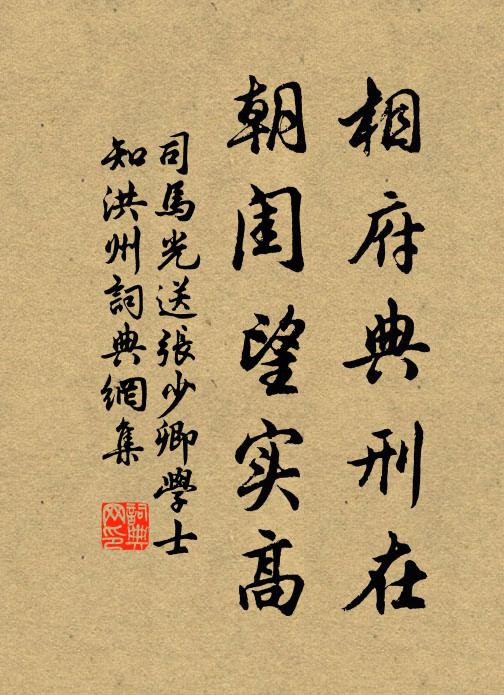 相府典刑在
朝闺望实高
司馬光送張少卿學士
知洪州詞典網集
詞典网印